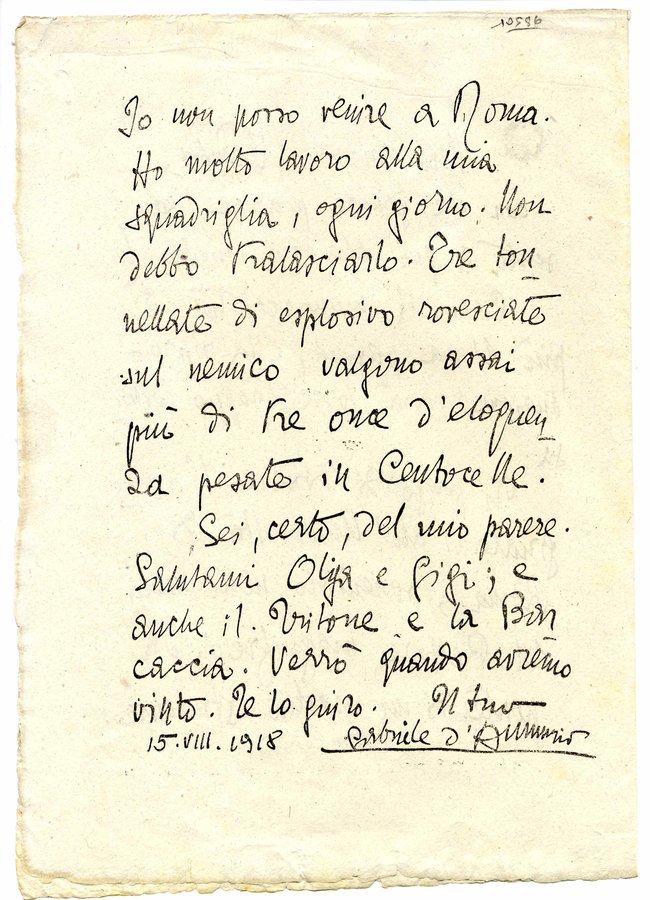 10586
Io non posso venire a Roma.
Ho molto lavoro alla mia
squadriglia, ogni giorno. Non
debbo tralasciarlo. Tre ton
nellate di esplosivo rovesciate
sul nemico valgono assai
più di tre once d'eloquen
za pesate in Centocelle.
Sei, certo, del mio parere.
Salutami Olga e Gigi; e
anche il Tritone e la Bar
caccia. Verrò quando avremo
vinto. Te lo giuro. Il tuo
15.VIII.1918 Gabriele d'Annunzio